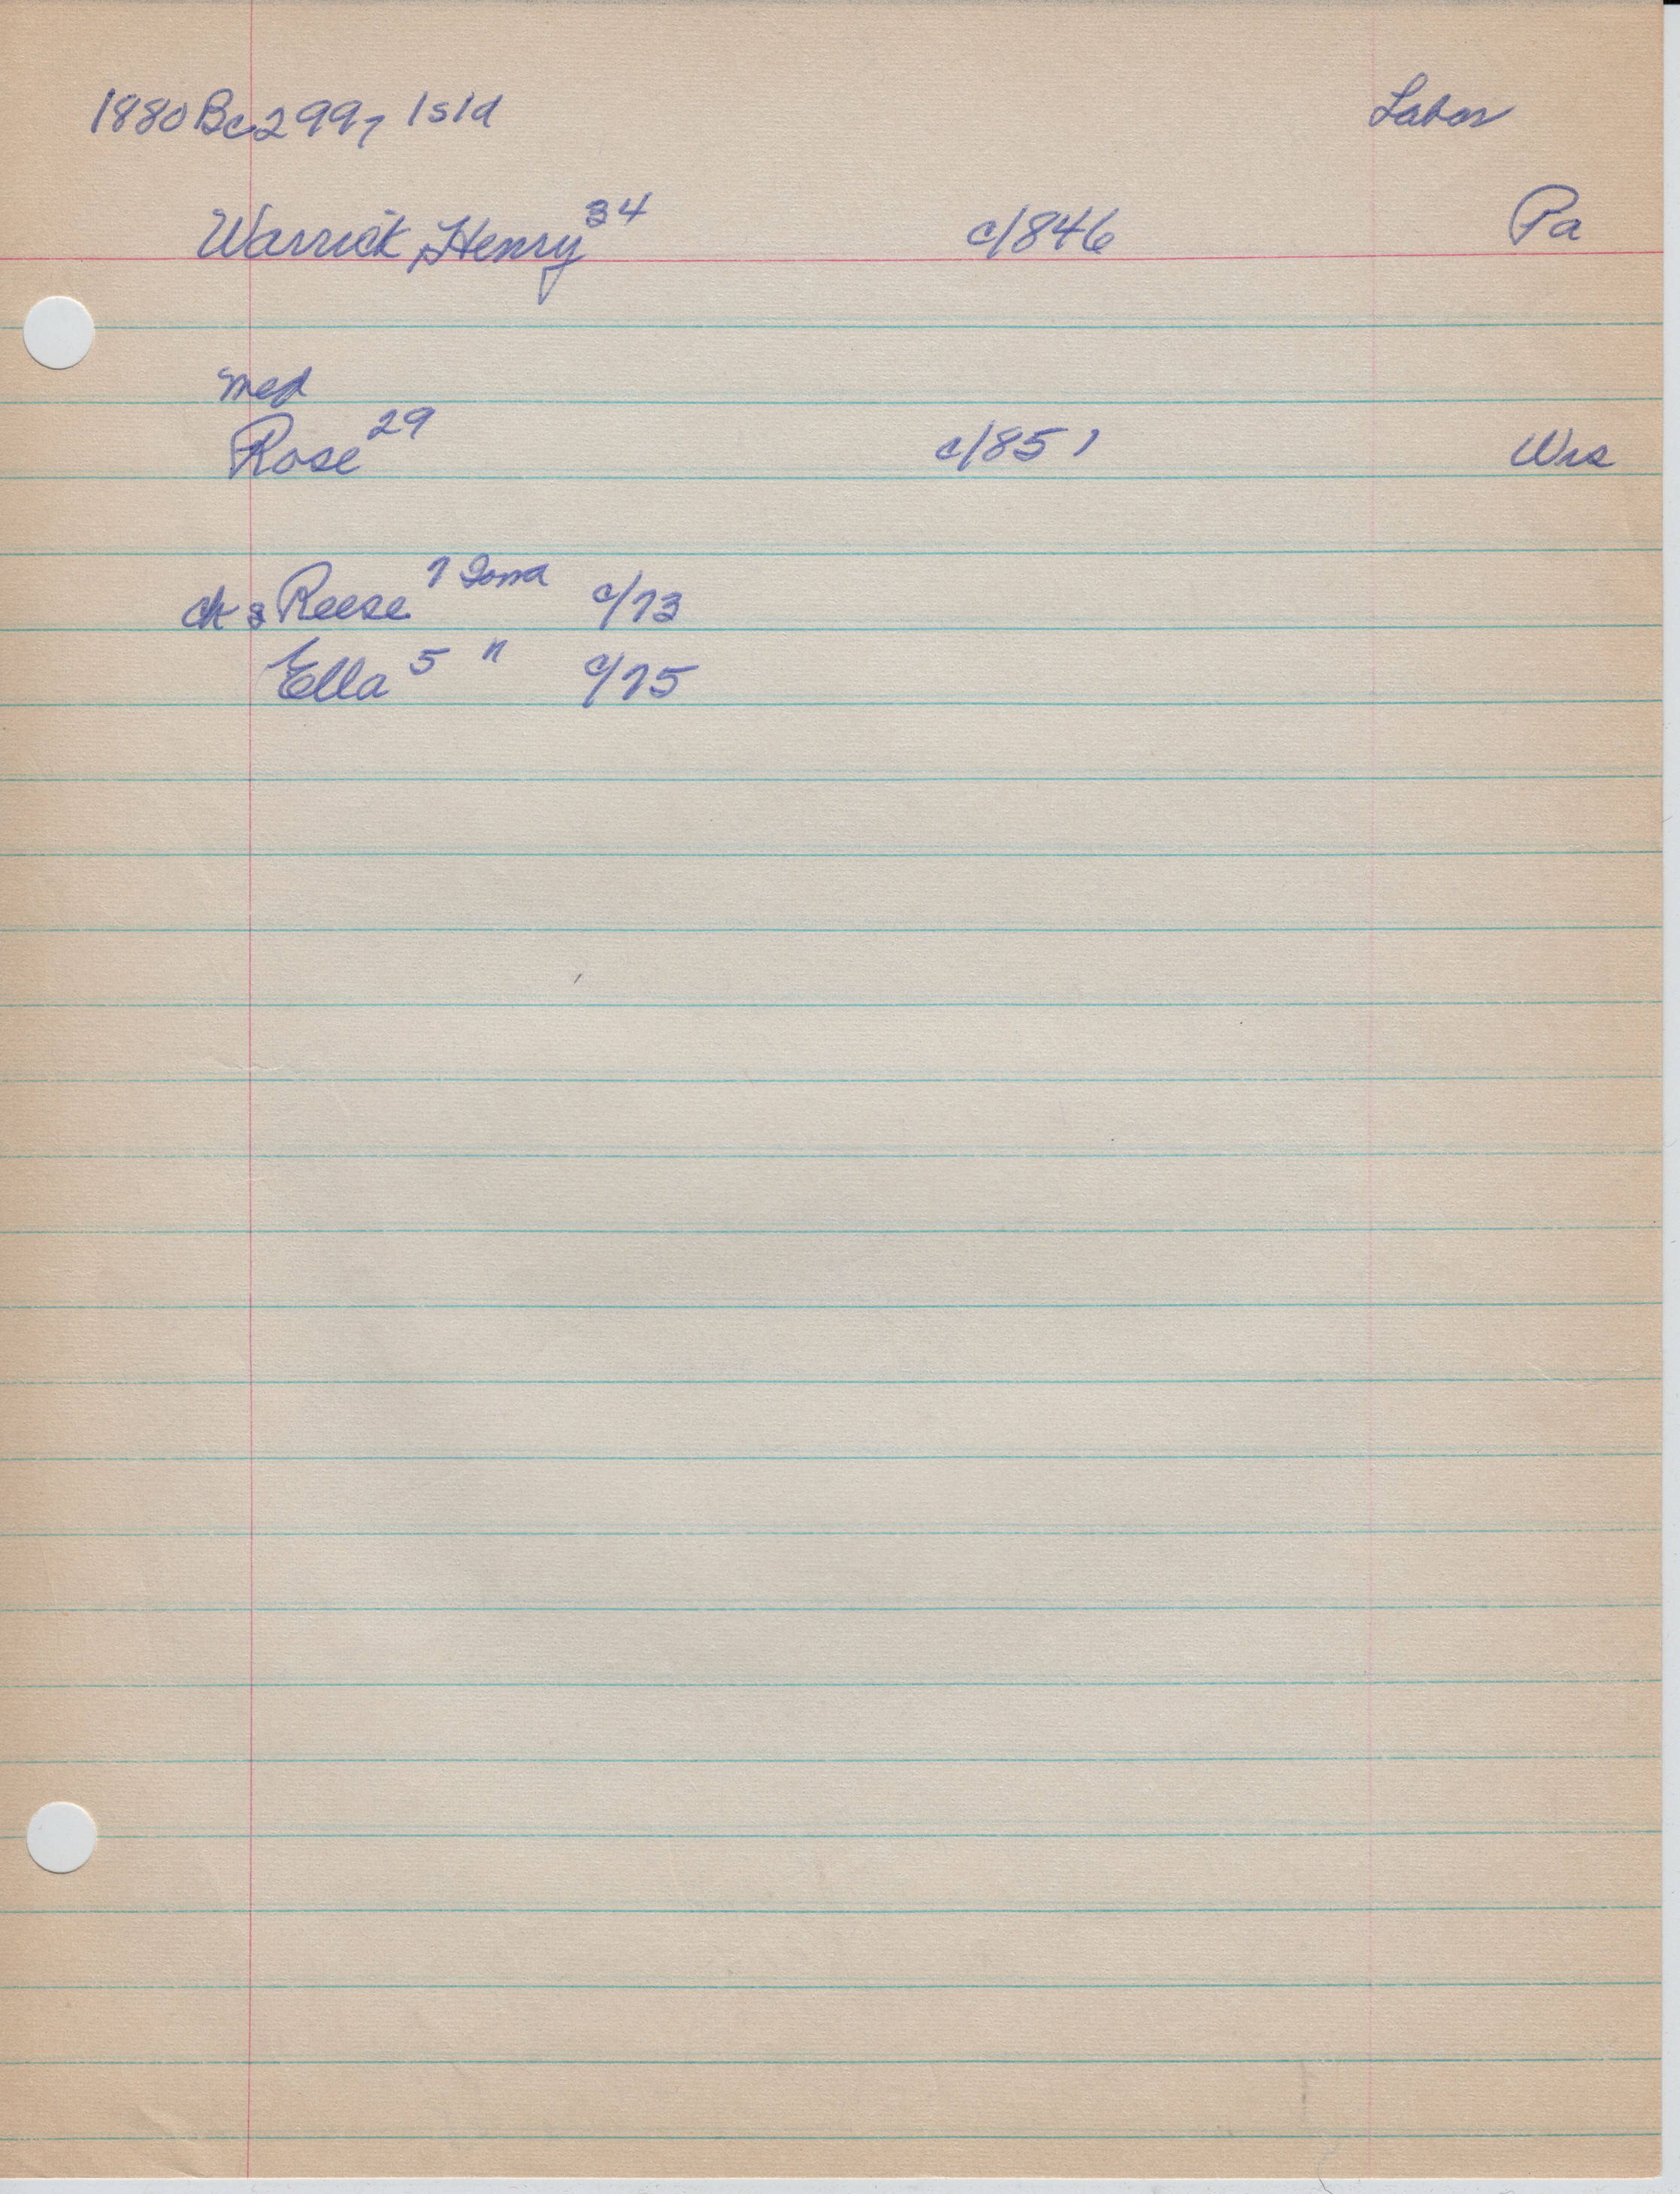 1880 Bc 299, Isld Labor
Warrick, Henry 34 c/1846 Pa
med
Rose 29 c/1851 Wis
ch: Reese 7 Iowa c/73
Ella 5 " c/75